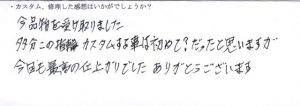 ・カスタム、修理した感想はいかがでしょうか？
今品物を受け取りました
多分この指輪カスタムする事は初めて？だったと思いますが
今回も最高の仕上がりでした ありがとうございます